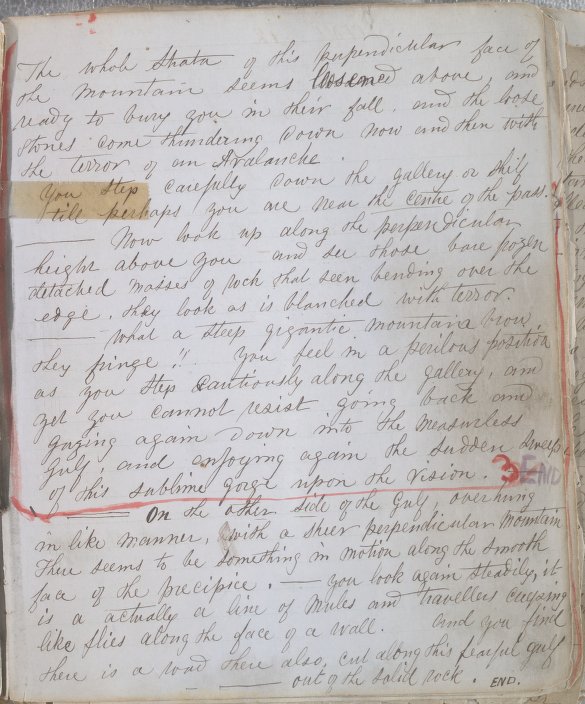 The whole strata of this perpendicular face of
the mountain seems loosened above, and
ready to bury you in their fall, and the loose
stones come thundering down now and then with
the terror of an Avalanche.
You step carefully down the gallery or shelf
till perhaps you are near the centre of the pass.
—— Now look up along the perpendicular
height above you and see those bare
detached masses of rock that seen bending over the
edge, they look as is blanched with terror.
—— what a steep gigantic mountain brow
they fringe!! You feel in a perilous position
as you step cautiously along the gallery, and
yet you cannot resist going back and
gazing again down into the measureless
gulf, and enjoying again the sudden sweep
of this sublime gorge upon the vision. 3 END
—— On the other side of the Gulf, overhung
in like manner, with a sheer perpendicular Mountain
There seems to be something in motion along the smooth
face of the precipice. — you look again steadily, it
is a actually a line of Mules and travellers creeping
like flies along the face of a wall. And you find
there is a road there also, cut along this fearful gulf
—— out of the solid rock. END.